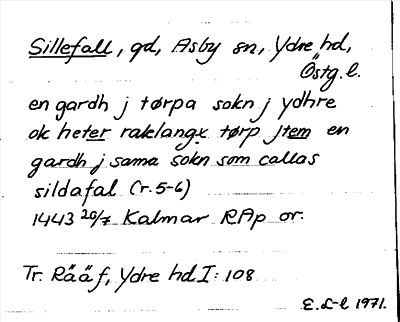 Sillefall, gd, Asby sn, Ydre hd,
Östg. l.
en gardh j tørpa sokn j ydhre
ok heter raklangx tørp jtem en
gardh j sama sokn som callas
sildafal (r. 5-6)
1443 20/7 Kalmar RAp or.
Tr. Rääf, Ydre hd I: 108
E. L-l 1971.